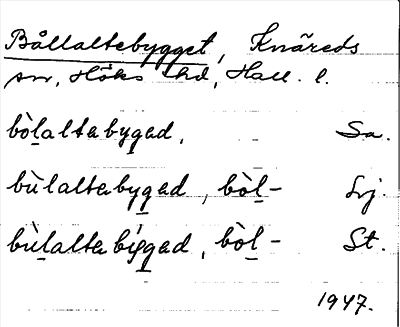 Bållaltebygget, Knäreds
sn, Höks hd, Hall. l.
bòlaltabygad, Sa.
bùlaltabygad, bòl- Lvj.
bùlaltabiggad, bòl- St.
1947.